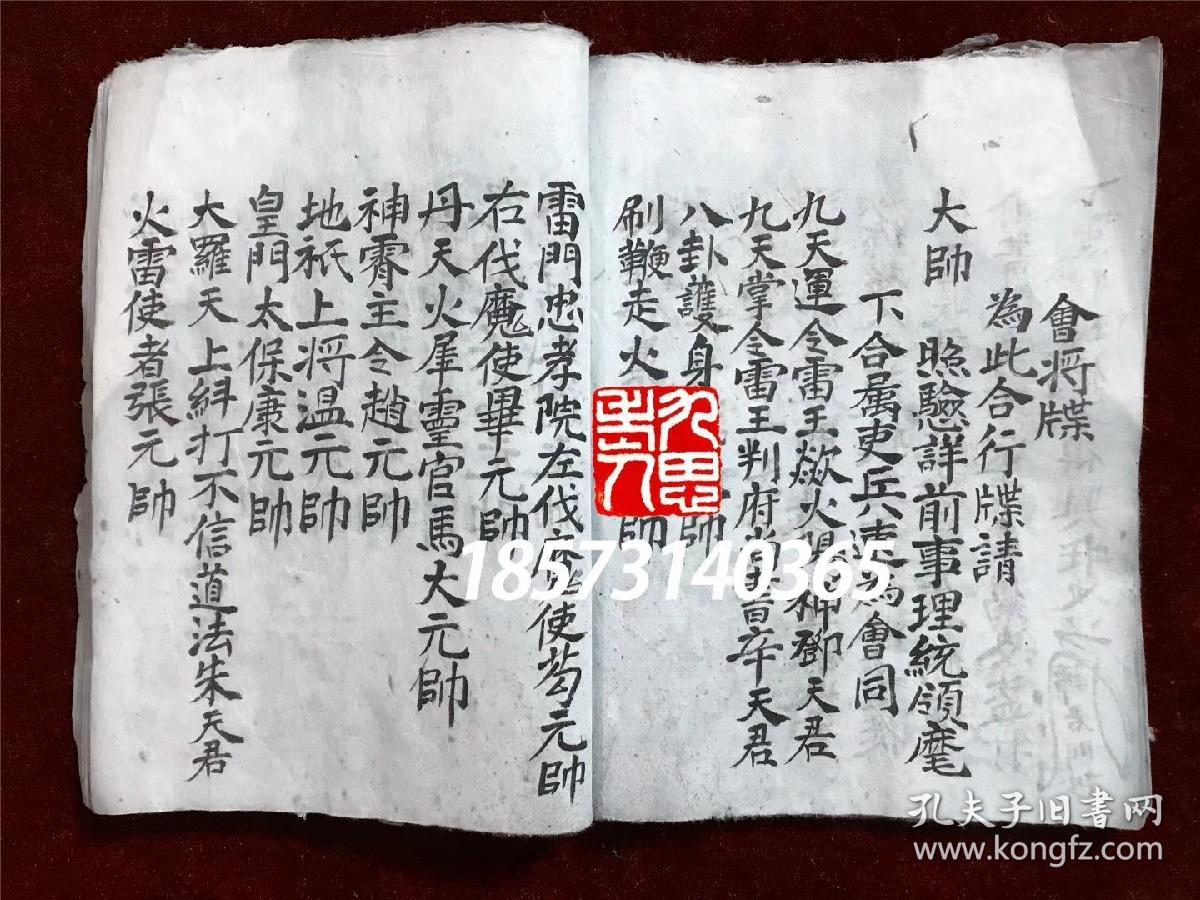 會將牒
為此合行牒請
大帥
照驗詳前事理統領麾
下合属吏兵速為會同
九天運令雷王歘火律令鄧天君
九天掌令雷王判府辛天君
八卦護身帥
刷鞭走火帥
雷門忠孝院左伐魔使苟元帥
右伐魔使畢元帥
丹天火犀靈官馬大元帥
神霄主令趙元帥
地祇上将温元帥
皇門太保康元帥
大羅天上糾打不信道法朱天君
火雷使者張元帥
18573140365
孔夫子旧書网
www.kongfz.com